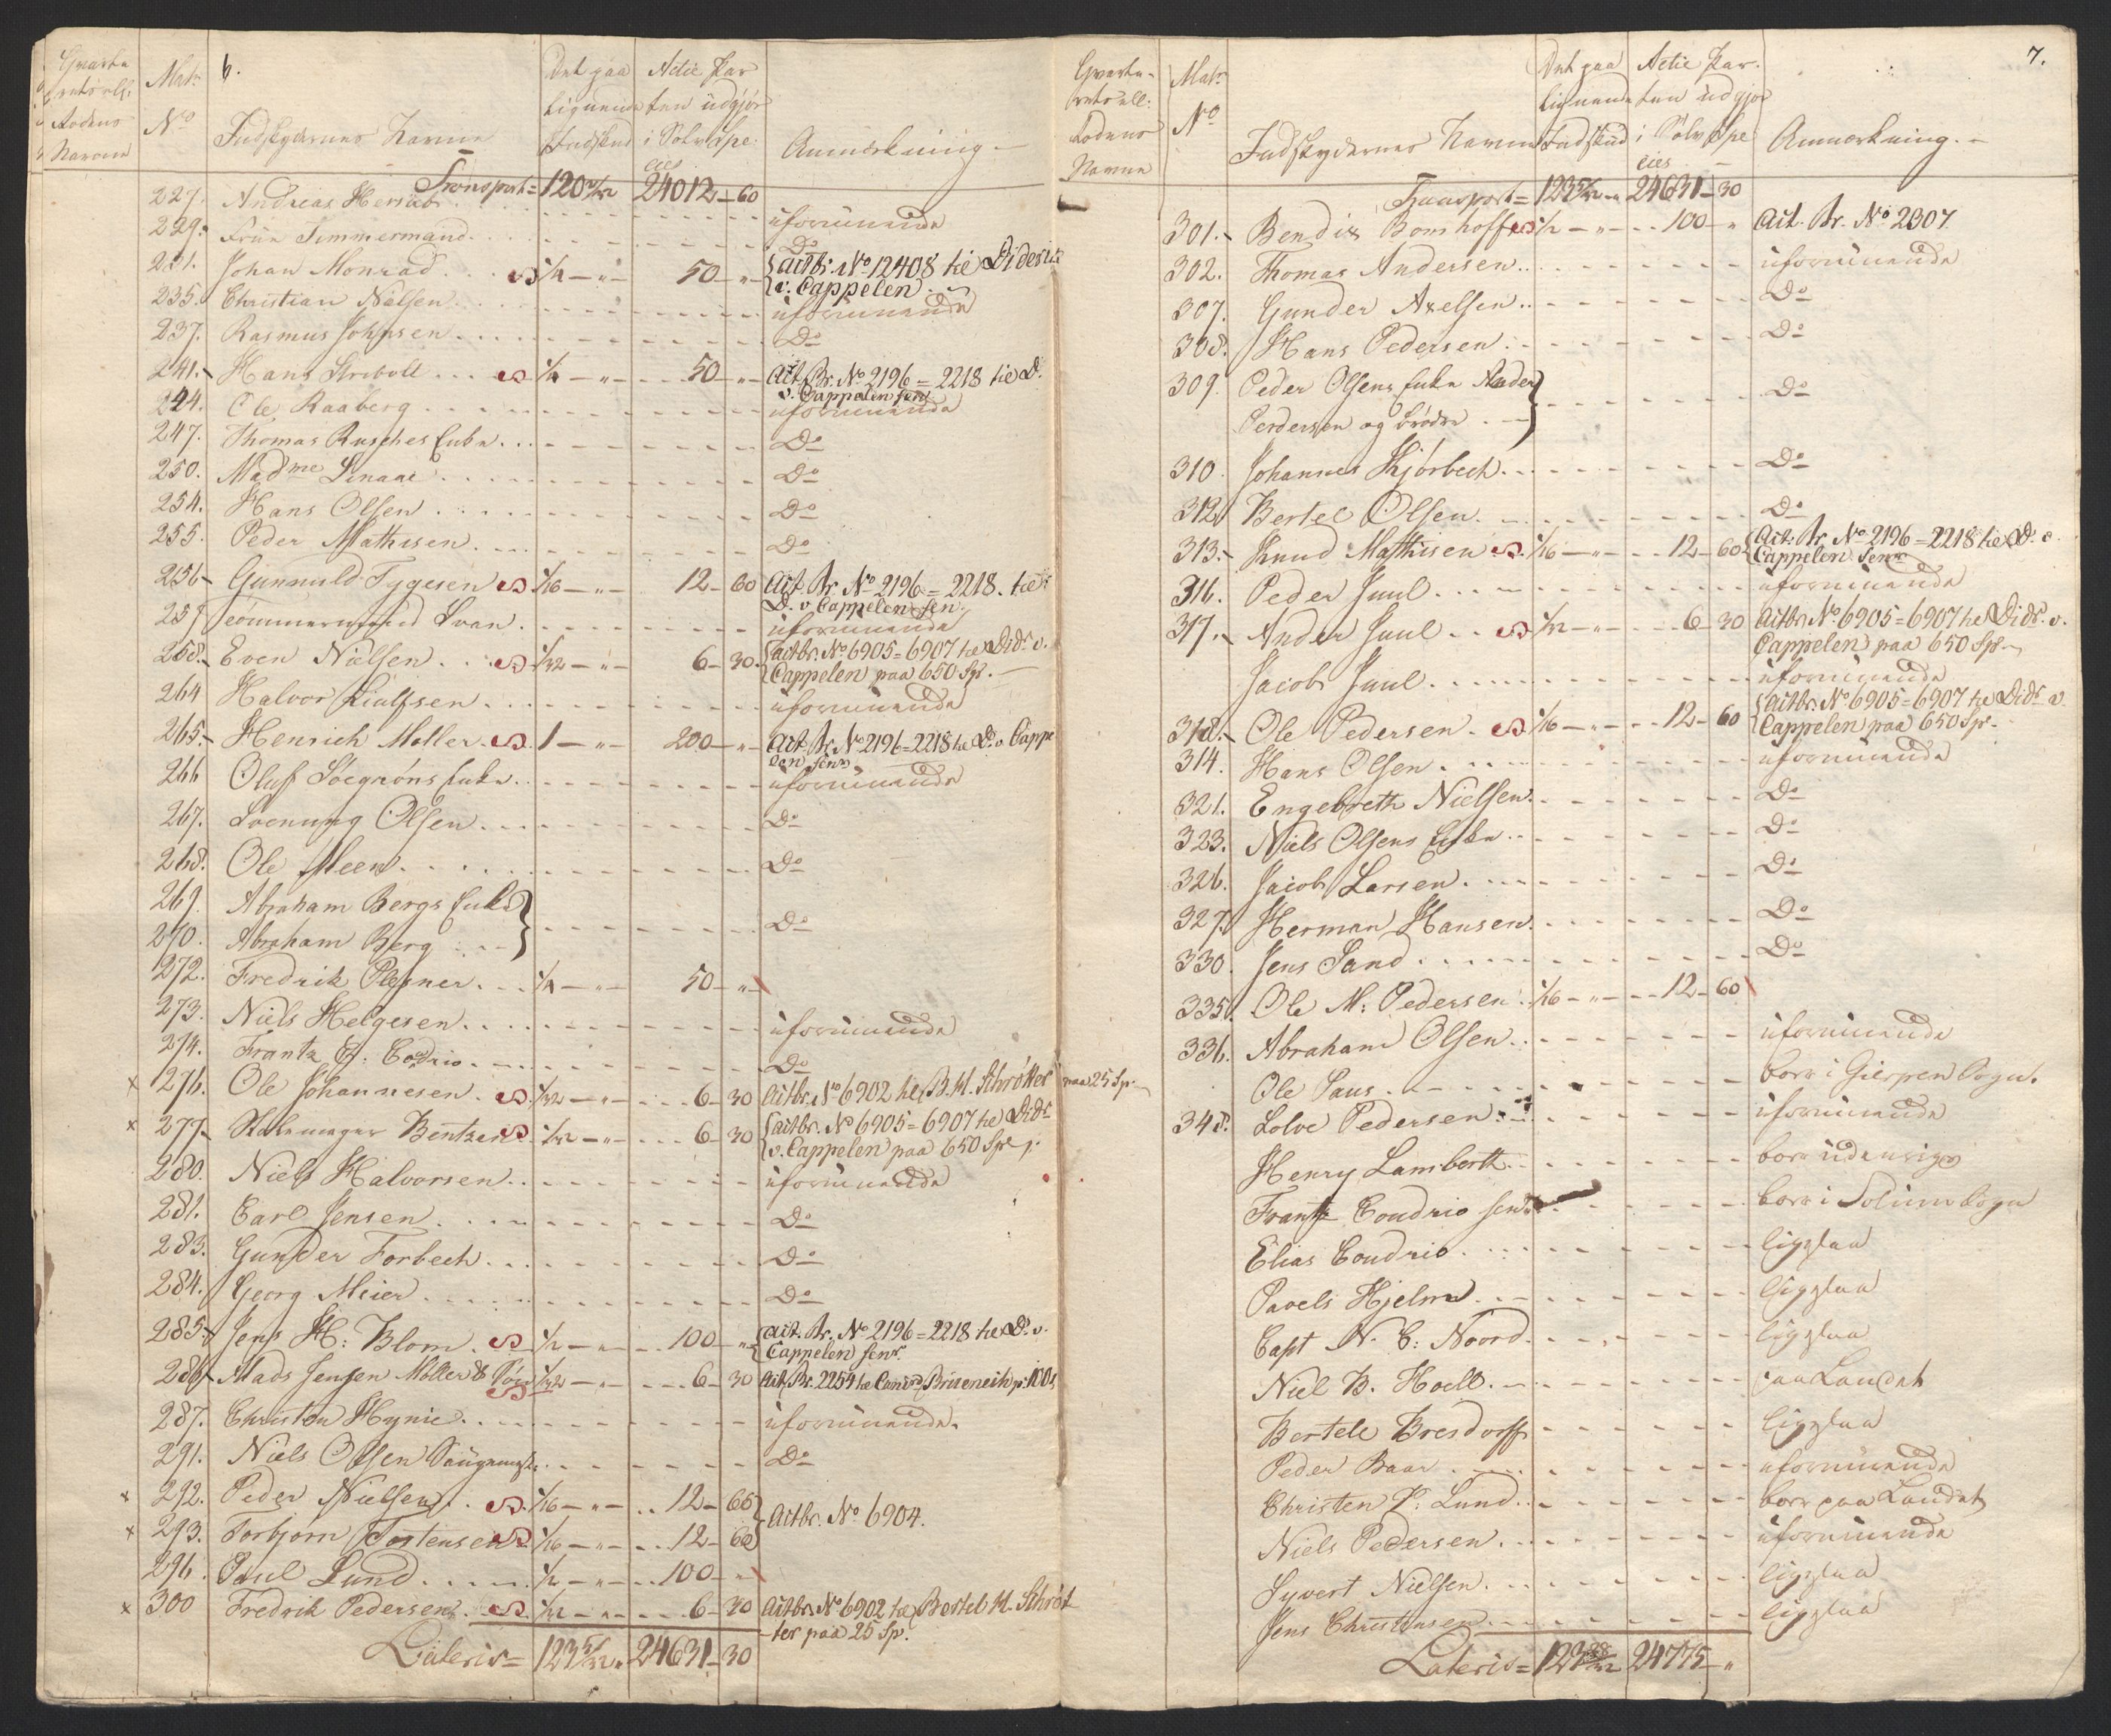 6.
Qvarte
rets ell:
Rodens
Navne
Matr
No
Indskydernes Navne
Det paa
lignende
Indskud
Actie Kar
ten udgjør
i Sølv Spe:
Anmærkning.
Transport = 120 24012 - 60
227. Andreas Hersleb uformuende
229. Frue Timmermand Do
231. Johan Monrad S 1/4 - " - 50 - " - Actbr. No 12408 til Diderik
v. Cappelen
235. Christian Nielsen uformuende
237. Rasmus Johnsen Do
241. Hans Stribolt S 1/4 - " - 50 - " - Act. Br. No 2196 = 2218 til D.
v. Cappelen sen
244. Ole Raaberg uformuende
247. Thomas Rusches Enke Do
250. Madme Linaae Do
254. Hans Olsen Do
255. Peder Mathisen Do
256 Gunnuld Tygesen S 1/16 - " - 12 - 60 Act. Br. No 2196 = 2218. til
D. v. Cappelen sen.
257 Tømmermand Svan uformuende
258. Even Nielsen S 1/32 - " - 6 - 30. Actbr. No 6905 = 6907 til Didr. v.
Cappelen paa 650 Sp.
264 Halvor Kiulfsen uformuende
265. Henrich Møller S. 1 - " - 200 - " - Act. Br. No 2196 = 2218 til D. v. Cappe
len senr
266 Oluf Søegrøns Enke uformuende
267. Svenung Olsen Do
268. Ole Meen Do
269. Abraham Bergs Enke
270. Abraham Berg Do
272. Fredrik Plesner 1/4 - " - 50 - "
273. Niels Helgesen uformuende
274. Frantz E: Codrio Do
x 276. Ole Johannesen S. 1/32 - " - 6 - 30 Actbr. No 6902 til B. H. Schrøtter paa 25 Sp.
x 277. Skomager Bentzen S 1/32 - " - 6 - 30 Actbr. No 6905 = 6907 til Didr
v. Cappelen paa 650 Spe
280. Niels Halvorsen uformuende
281. Carl Jensen Do
283. Gunder Forbech Do
284. Georg Meier Do
285. Jens H: Blom S 1/2 - " - 100 - " Act. Br. No 2196 = 2218 til D. v.
Cappelen senr.
286 Mads Jensen Møller & Søn S 1/32 - " - 6 - 30 Act. Br. 2254
287. Christen Hynie uformuende.
291. Niels Olsen Do
x 292. Peder Nielsen S. 1/16 - " - 12 - 60
x 293. Torbjørn Tostensen S 1/16 - " - 12 - 60 Actbr. No 6904.
296. Paul Lund 1/2 - " - 100 - "
x 300 Fredrik Pedersen S. 1/32 - " - 6 - 30 Actbr. No 6902 til Bertel H. Schrøt
ter paa 25 Sp.
Lateris = 123 5/32 24631 - 30
7.
Qvarte-
rets ell:
Rodens
Navne
Matr
No
Indskydernes Navne
Det paa
lignende
Indskud
Actie Kar.
ten udgjør
i Sølv Spe
Anmærkning.
Transport = 123 5/32 - " 24631 - 30
301. Bendix Bomhoff S 1/2 - " - 100 - " Act. Br. No 2307
302. Thomas Andersen uformuende
307. Gunder Axelsen Do
308. Hans Pedersen Do
309. Peder Olsens Enke Ander
Perdersen og Brødre Do
310. Johannes Kjørbech Do
312 Bertel Olsen Do
313. Knud Mathisen S. 1/16 - " - 12 - 60 Act. Br. No 2196 = 2218 til D. v.
Cappelen Senr
316. Peder Juul uformuende
317. Ander Juul S 1/32 - " - 6 - 30 Actbr. No 6905 = 6907 til Didr. v.
Cappelen paa 650 Sp.
Jacob Juul uformuende
318. Ole Pedersen S 1/16 - " - 12 - 60 Actbr. No 6905 = 6907 til Didr v.
Cappelen paa 650 Sp.
314. Hans Olsen uformuende
321. Engebreth Nielsen Do
323. Niels Olsens Enke Do
326. Jacob Larsen Do
327. Herman Hansen Do
330. Jens Sand Do
335. Ole M: Pedersen 1/16 - " - 12 - 60
336. Abraham Olsen uformuende
Ole Saus boer i Gierpen Sogn.
348. Solve Pedersen uformuende
Henry Lamberth boer udenrigs
Frantz Coudrio senr boer i Solum Sogn
Elias Coudrio ligesaa
Povels Hjelm ligesaa
Capt N. C: Noord ligesaa
Niel B. Hoell paa Landet
Bertele Bresdorff ligesaa
Peder Baar uformuende
Christen P: Lund boer paa Landet
Niels Pedersen uformuende
Syvert Nielsen ligesaa
Jens Christensen ligesaa
Lateris = 123 24775 - "